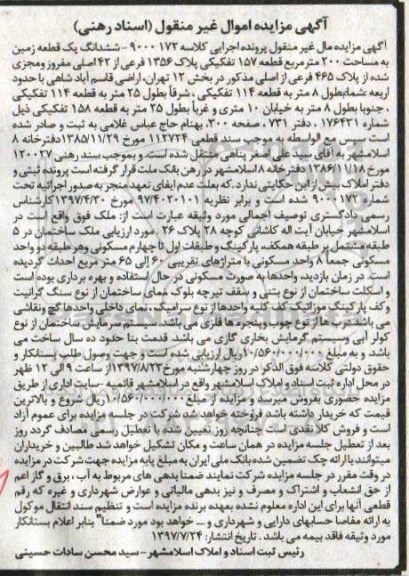 آگهی مزایده اموال غیر منقول (اسناد رهنی)
آگهی مزایده مال غیر منقول پرونده اجرایی کلاسه ۹۰۰۰۱۷۳ - ششدانگ یک قطعه زمین
به مساحت ۲۰۰ مترمربع قطعه ۱۵۷ تفکیکی پلاک ۱۳۵۶ فرعی از ۴۲ اصلی مفروز ومجزی
شده از پلاک ۴۶۵ فرعی از اصلی مذکور در بخش ۱۲ تهران، اراضی قاسم آباد شاهی با حدود
اربعه :شمابطول ۸ متر به قطعه ۱۱۴ تفکیکی ، شرقا بطول ۲۵ متر به قطعه ۱۱۴ تفکیکی
، جنوبا بطول ۸ متر به خیابان ۱۰ متری و غربا بطول ۲۵ متر به قطعه ۱۵۸ تفکیکی ذیل
شماره ۱۷۶۴۳۱ ، دفتر ۷۳۱ ، صفحه ۳۰۰، بهنام حاج عباس غلامی به ثبت و صادر شده
است سپس مع الواسطه به موجب سند قطعی ۱۱۲۷۲۴ مورخ ۱۳۸۵/۱۱/۲۹ دفترخانه ۸
اسلامشهر به آقای سید علی اصغر پناهی منتقل شده است و بموجب سند رهنی ۱۲۰۰۲۷
مورخ ۱۳۸۶/۱۱/۱۸ دفترخانه ۸ اسلامشهر در رهن بانک ملت قرار گرفته است پرونده ثبتی و
دفتر املاک بیش از این حکایتی ندارد .که بعلت عدم ایفای تعهد منجر به صدور اجرائیه تحت
شماره ۹۰۰۰۱۷۳ شده است و برابر نظریه ۹۷/۴۰۲۰۱۰۱ مورخ ۱۳۹۷/۴/۳۰ کارشناس
رسمی دادگستری توصیف اجمالی مورد وثیقه عبارت است از: ملک فوق واقع است در
اسلامشهر خیابان آیت اله کاشانی کوچه ۲۸ پلاک ۲۶ . مورد ارزیابی ملک ساختمان در ۵
طبقه مشتمل بر طبقه همکف، پارکینگ و طبقات اول تا چهارم مسکونی وهر طبقه دو واحد
مسکونی جمعاً ۸ واحد مسکونی با متراژهای تقریبی ۶۰ الی ۶۵ متر مربع احداث گردیده
است. در زمان بازدید، واحدها به صورت مسکونی در حال استفاده و بهره برداری بوده است
و اسکلت ساختمان از نوع بتنی و سقف تیرچه بلوک نمای ساختمان از نوع سنگ گرانیت
و کف پارکینگ موزائیک کف کلیه واحدها از نوع سرامیک نمای داخلی واحدها گچ ونقاشی
می باشد.درب ها از نوع چوب وپنجره ها فلزی می باشد. سیستم سرمایش ساختمان از نوع
کولر آبی وسیستم گرمایش بخاری گازی می باشد. قدمت بنا حدود ده سال ساخت می
باشد . و به مبلغ ۱۰/۵۶۰/۰۰۰/۰۰۰ ریال ارزیابی شده است و جهت وصول طلب بستانکار و
حقوق دولتی کلاسه فوق الذکر در روز چهارشنبه مورخ ۱۳۹۷/۸/۲۳ از ساعت ۹ الی ۱۲ ظهر
در محل اداره ثبت اسناد و املاک اسلامشهر واقع در اسلامشهر قائمیه -سایت اداری از طریق
مزایده حضوری بفروش میرسد و مزایده از مبلغ ۱۰/۵۶۰/۰۰۰/۰۰۰ ریال شروع و بالاترین
قیمت که خریدار داشته باشد فروخته خواهد شد شرکت در جلسه مزایده برای عموم آزاد
است و فروش کلا نقدی است چنانچه روز تعیین شده با تعطیل رسمی مصادف گردد روز
بعد از تعطیل جلسه مزایده در همان ساعت و مکان تشکیل خواهد شد طالبین و خریداران
میتوانند با ارائه چک تضمین شده بانک ملی ایران به مبلغ پایه مزایده جهت شرکت در مزایده
در وقت مقرر در جلسه مزایده شرکت نمایند ضمنا بدهی های مربوط به آب ، برق و گاز اعم
از حق انشعاب و اشتراک و مصرف و نیز بدهی مالیاتی و عوارض شهرداری و غیره که رقم
قطعی آنها برای این اداره معلوم نشده بعهده برنده مزایده است و تنظیم سند انتقال موکول
به ارائه مفاصا حسابهای دارایی و شهرداری و ... خواهد بود مورد ضمنا" بنابر اعلام بستانکار
مورد وثیقه فاقد بیمه می باشد . تاریخ انتشار: ۱۳۹۷/۷/۲۴
رئیس ثبت اسناد و املاک اسلامشهر - سید محسن سادات حسینی